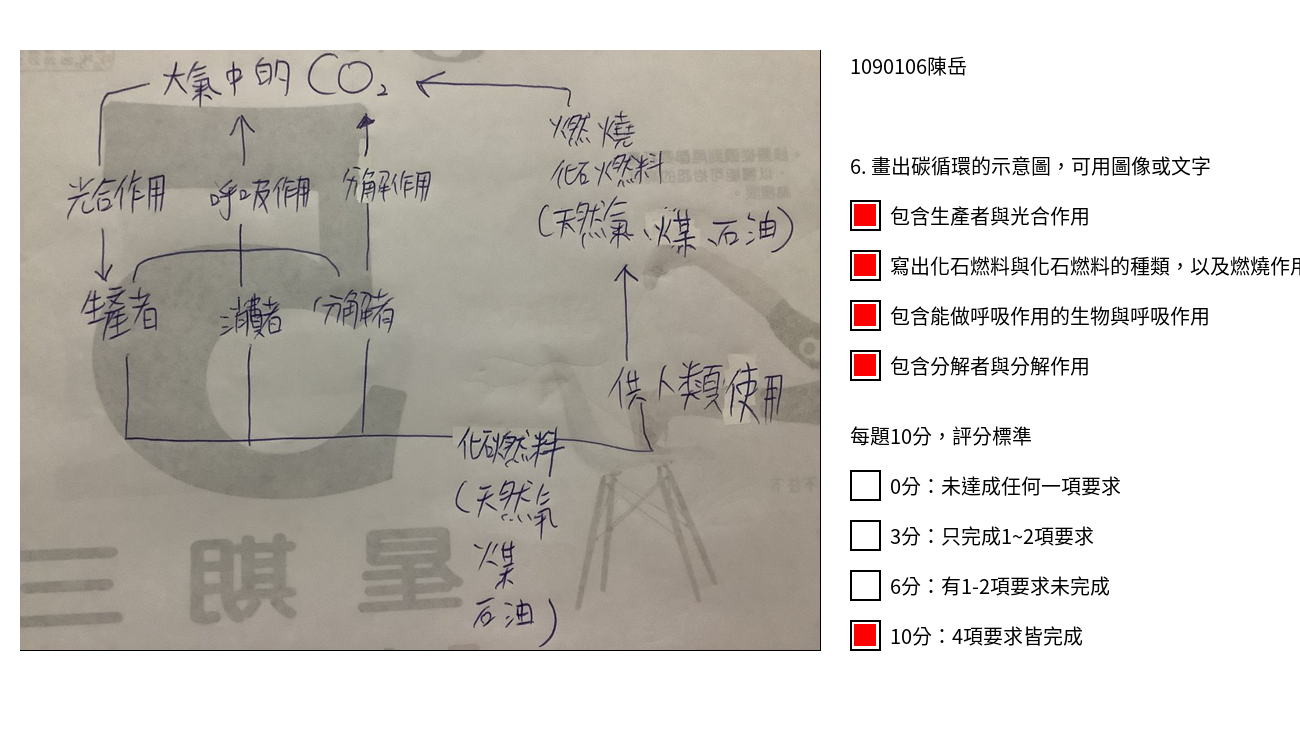 大氣中的 CO₂
燃燒
化石燃料
(天然氣、煤、石油)
光合作用 呼吸作用 分解作用
生產者 消費者 分解者
供人類使用
化石燃料
(天然氣
煤
石油)
星期三
1090106陳岳
6. 畫出碳循環的示意圖，可用圖像或文字
包含生產者與光合作用
寫出化石燃料與化石燃料的種類，以及燃燒作用
包含能做呼吸作用的生物與呼吸作用
包含分解者與分解作用
每題10分，評分標準
0分：未達成任何一項要求
3分：只完成1~2項要求
6分：有1-2項要求未完成
10分：4項要求皆完成